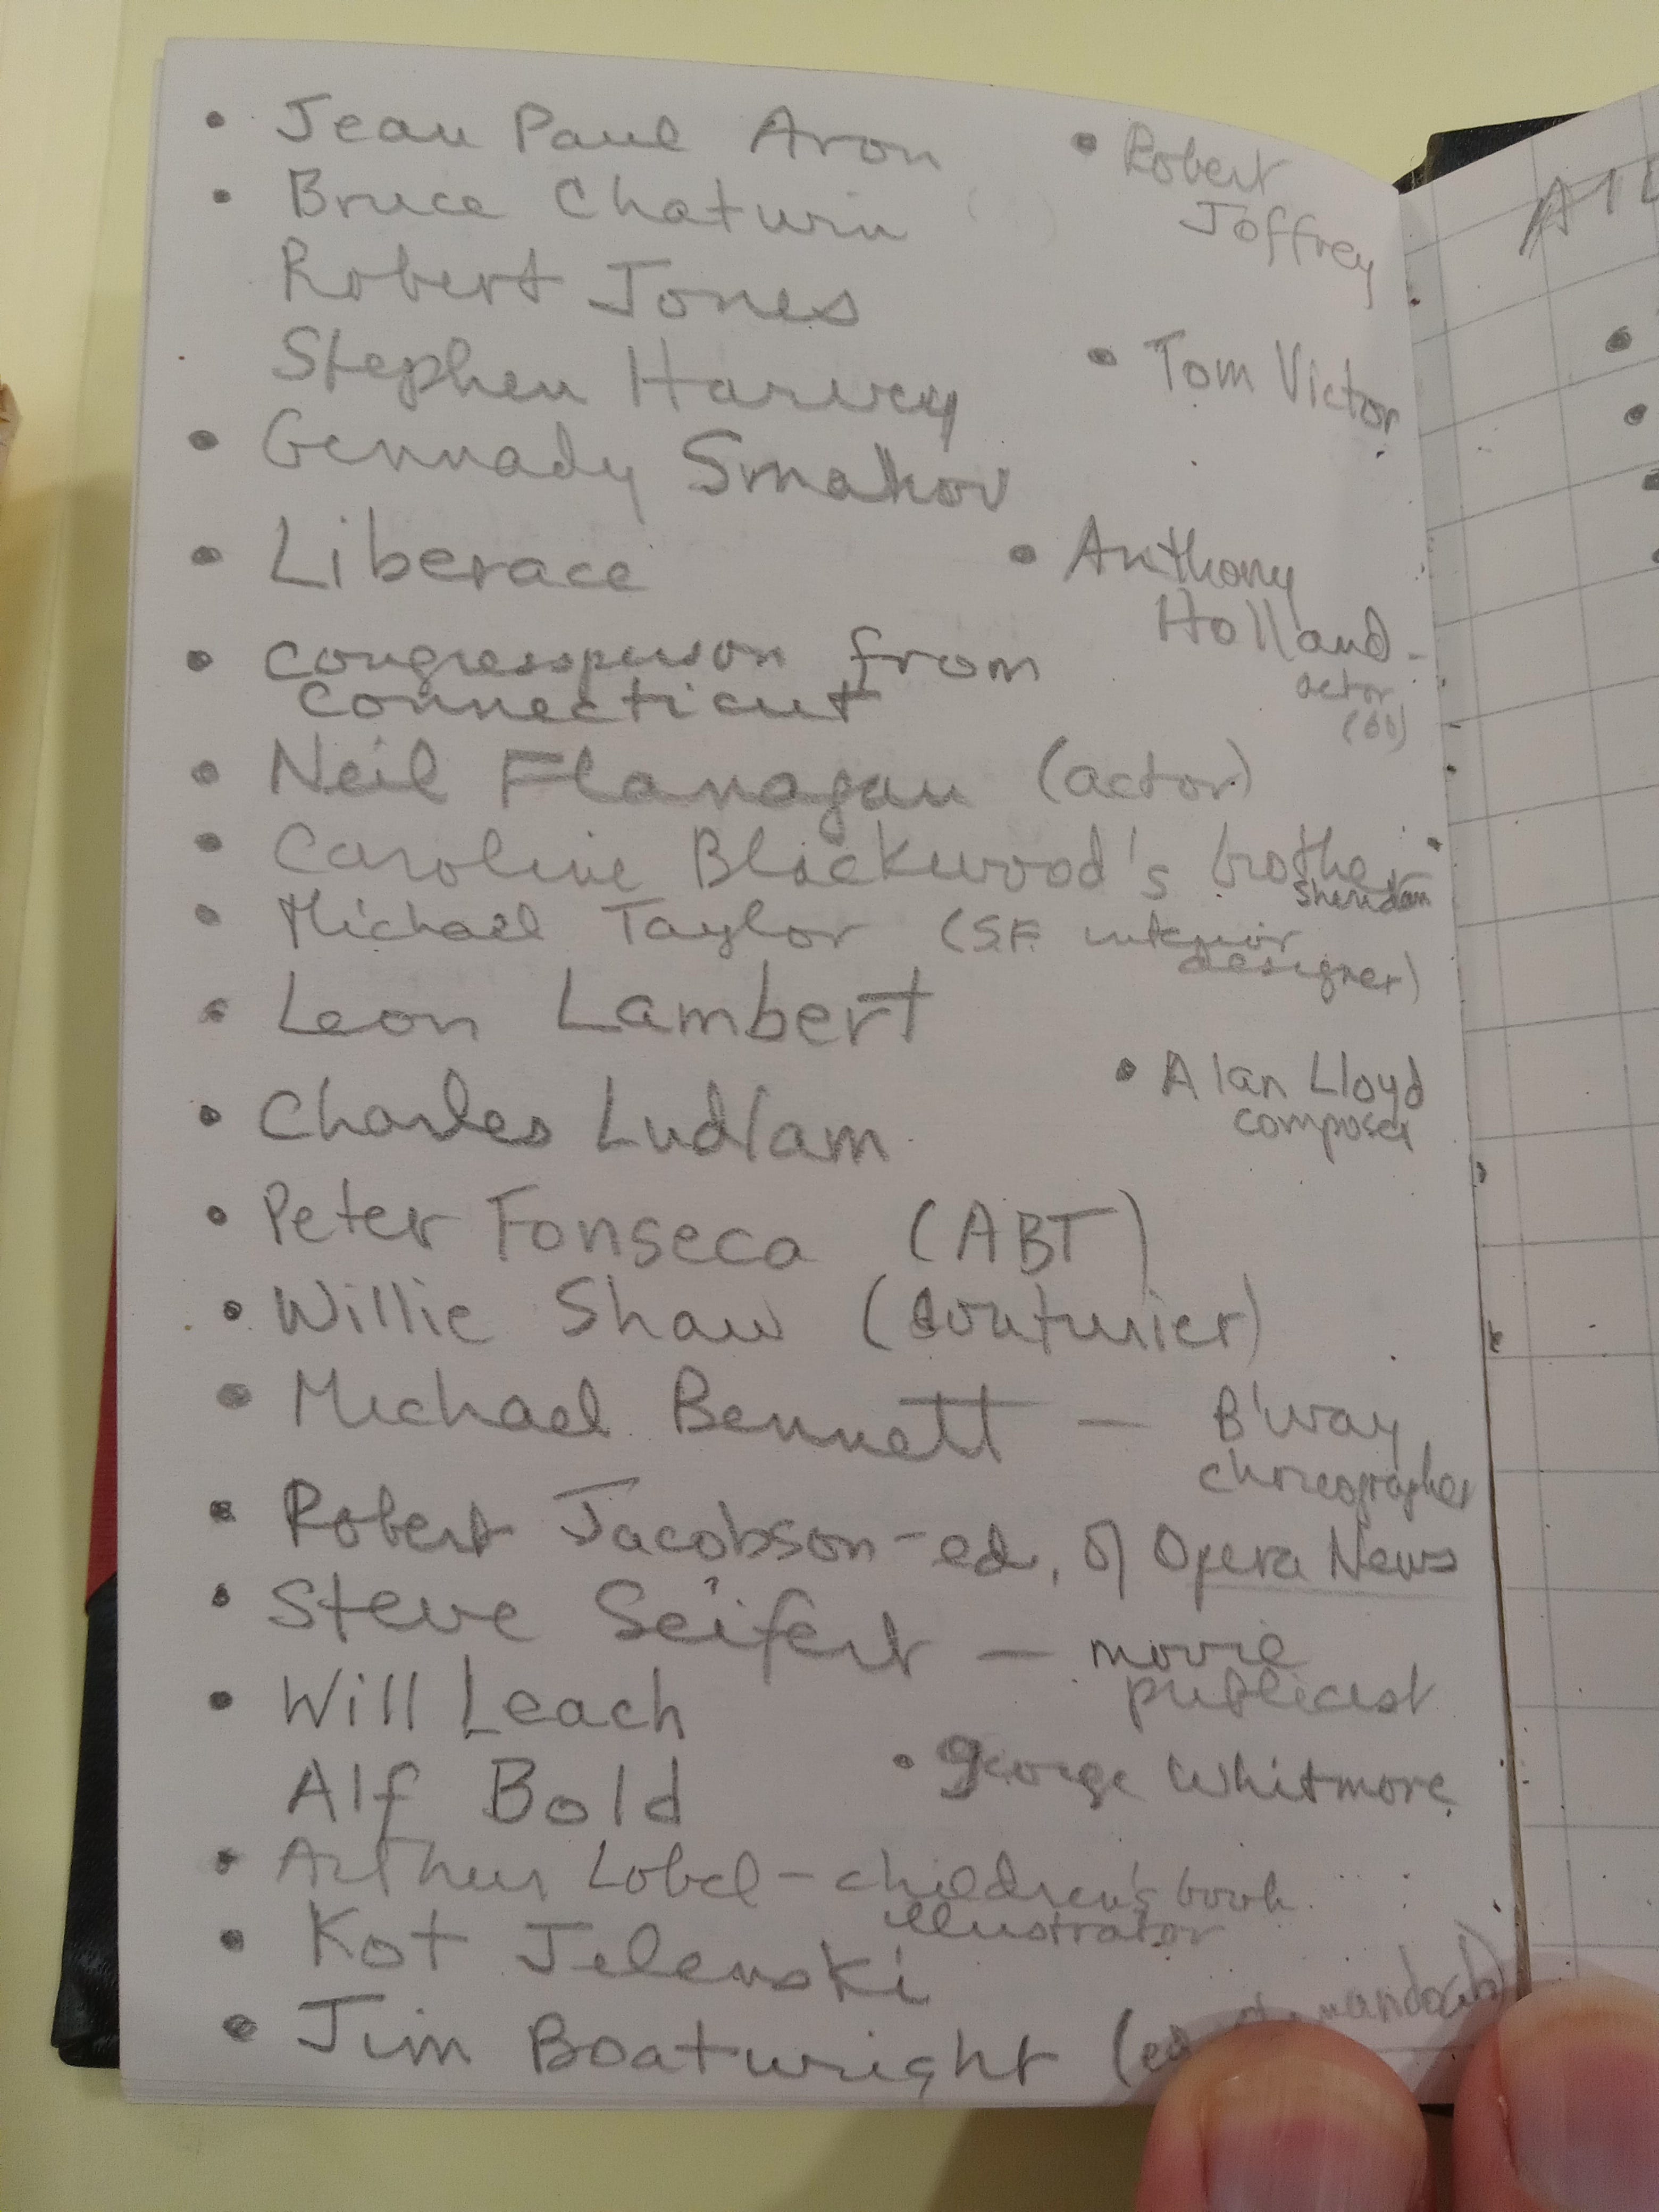 • Jean Paul Aron
• Bruce Chatwin
Robert Jones
Stephen Harvey
• Gennady Smakov
• Liberace
• congressperson from
connecticut
• Neil Flanagan (actor)
• Caroline Blackwood's brother
Sheridan
• Michael Taylor (SF interior
designer)
• Leon Lambert
• Charles Ludlam
• Peter Fonseca (ABT)
• Willie Shaw (couturier)
• Michael Bennett — B'way
choreographer
• Robert Jacobson - ed. of Opera News
• Steve Seifert — movie
publicist
• Will Leach
Alf Bold
• Arthur Lobel - children's book
illustrator
• Kot Jelenski
• Jim Boatwright (ed
• Robert
Joffrey
• Tom Victor
• Anthony
Holland -
actor
• Alan Lloyd
composer
• George Whitmore